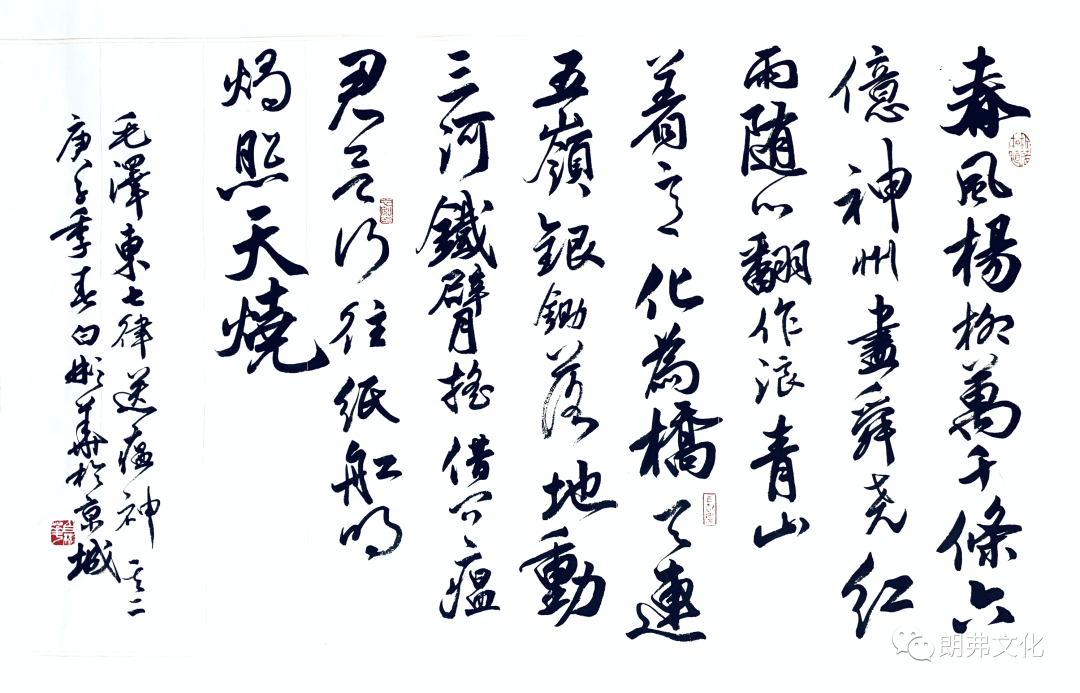 春風楊柳萬千條六
億神州盡舜堯紅
雨随心翻作浪青山
着意化為橋天連
五嶺銀鋤落地動
三河鐵臂搖借問瘟
君欲何往紙船明
燭照天燒
毛澤東七律送瘟神其二
庚子季春白彬華於京城
朗弗文化